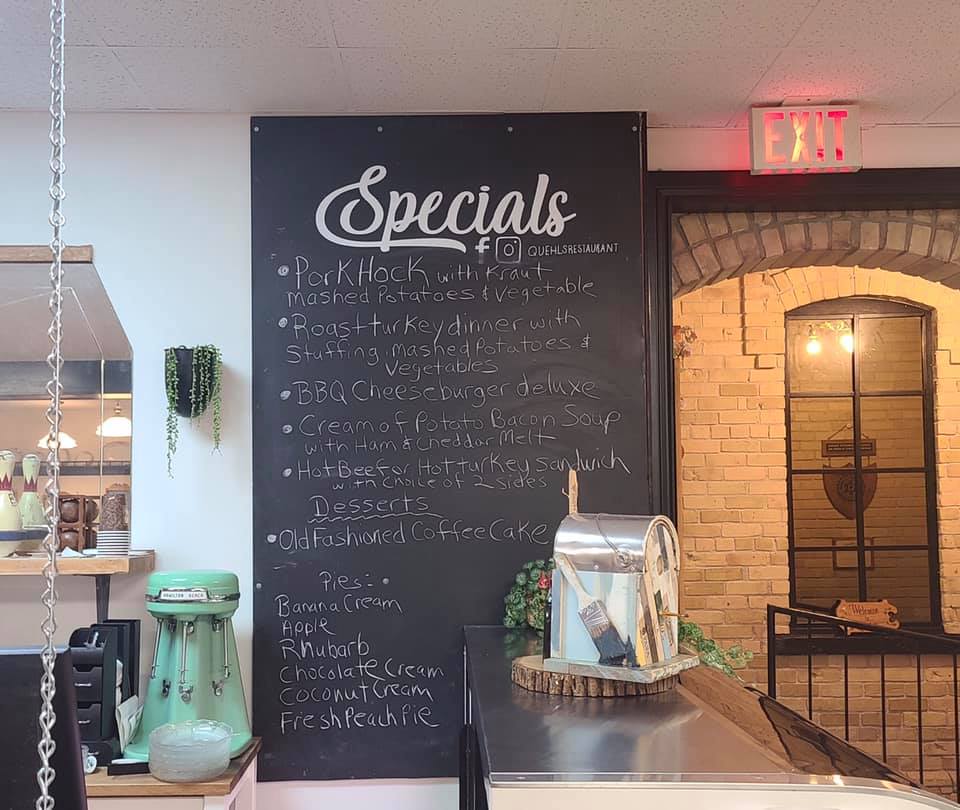 EXIT
Specials
QUEHLSRESTAURANT
PorK Hock with Kraut
mashed Potatoes & Vegetable
Roast turkey dinner with
Stuffing, mashed Potatoes &
Vegetables
BBQ Cheeseburger deluxe
Cream of Potato Bacon Soup
with Ham & Cheddar Melt
Hot Beef or Hot turkey sandwich
with choice of 2 sides
Desserts
Old Fashioned Coffee Cake
Pies:-
Banana Cream
Apple
Rhubarb
Chocolate Cream
Coconut Cream
Fresh Peach Pie
HAMILTON BEACH
Welcome